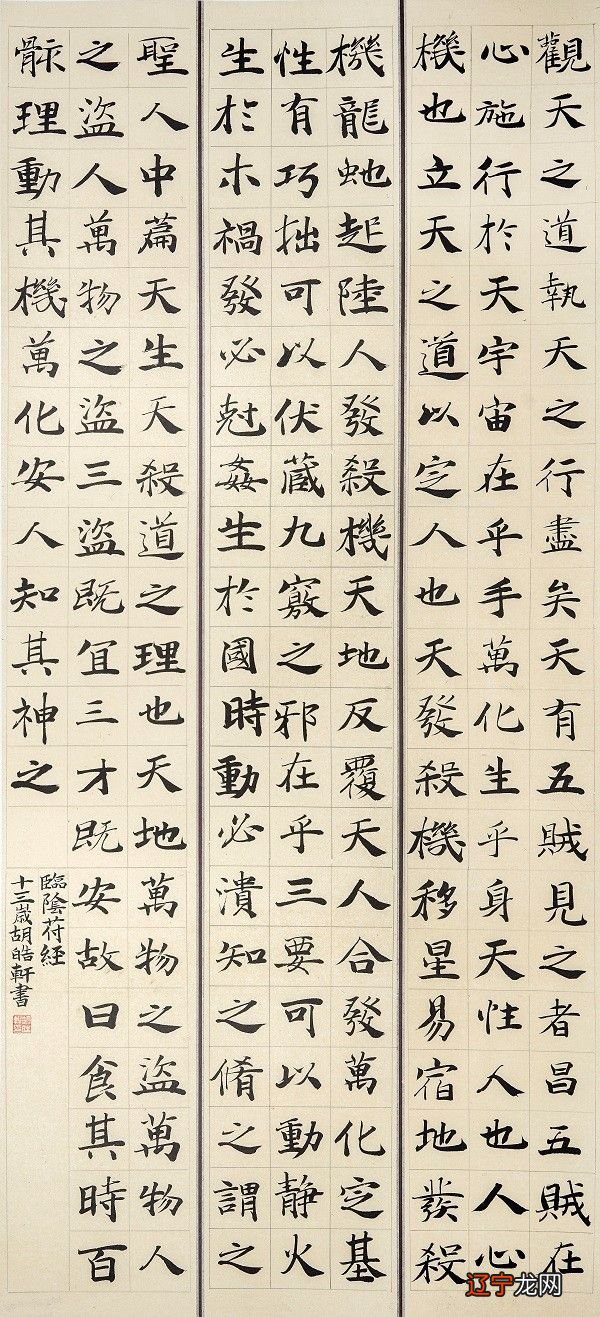 觀天之道執天之行盡矣天有五賊見之者昌五賊在
心施行於天宇宙在乎手萬化生乎身天性人也人心
機也立天之道以定人也天發殺機移星易宿地發殺
機龍虵起陸人發殺機天地反覆天人合發萬化定基
性有巧拙可以伏藏九竅之邪在乎三要可以動静火
生於木禍發必尅姦生於國時動必潰知之脩之謂之
聖人中篇天生天殺道之理也天地萬物之盜萬物人
之盜人萬物之盜三盜既宜三才既安故曰食其時百
骸理動其機萬化安人知其神之
臨陰符經
十三歲胡皓軒書
辽宁龙网